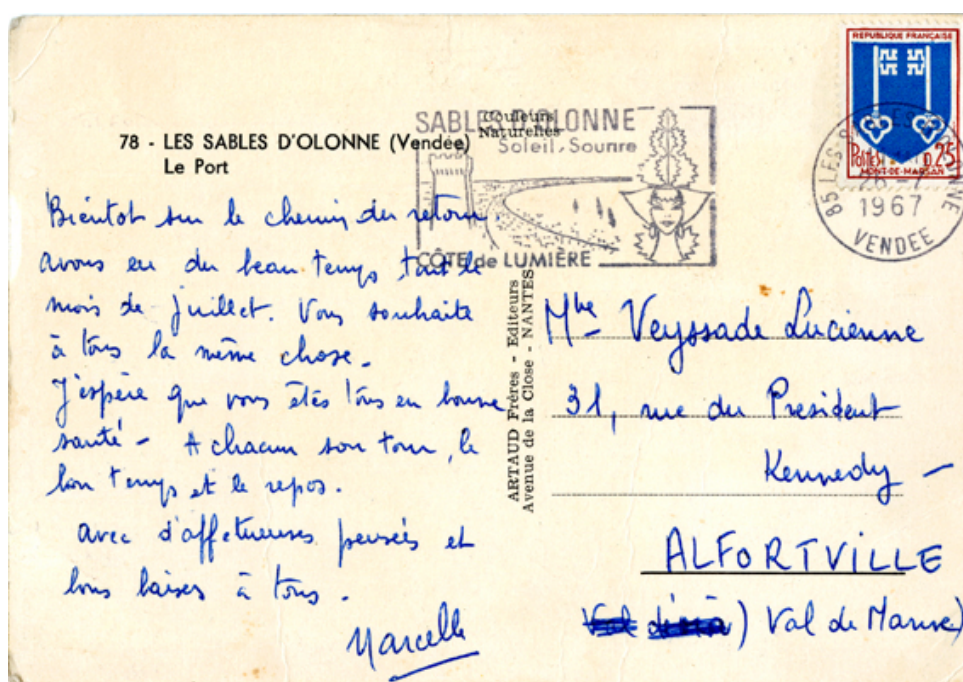 78 - LES SABLES D'OLONNE (Vendée)
Le Port
Couleurs
Naturelles
SABLES D'OLONNE
Soleil, Sourire
CÔTE de LUMIÈRE
REPUBLIQUE FRANÇAISE
POSTES 0,25
MONT-DE-MARSAN
85 LES SABLES D'OLONNE
1967
VENDEE
Bientot sur le chemin du retour.
avons eu du beau temps tout le
mois de juillet. Vous souhaite
à tous la même chose.
J'espère que vous êtes tous en bonne
santé - A chacun son tour, le
bon temps et le repos.
avec d'affetueuses pensées et
bons baises à tous.
Marcelle
ARTAUD Frères - Editeurs
Avenue de la Close - NANTES
Mme Veyssade Lucienne
31, rue du President
Kennedy -
ALFORTVILLE
) Val de Marne)